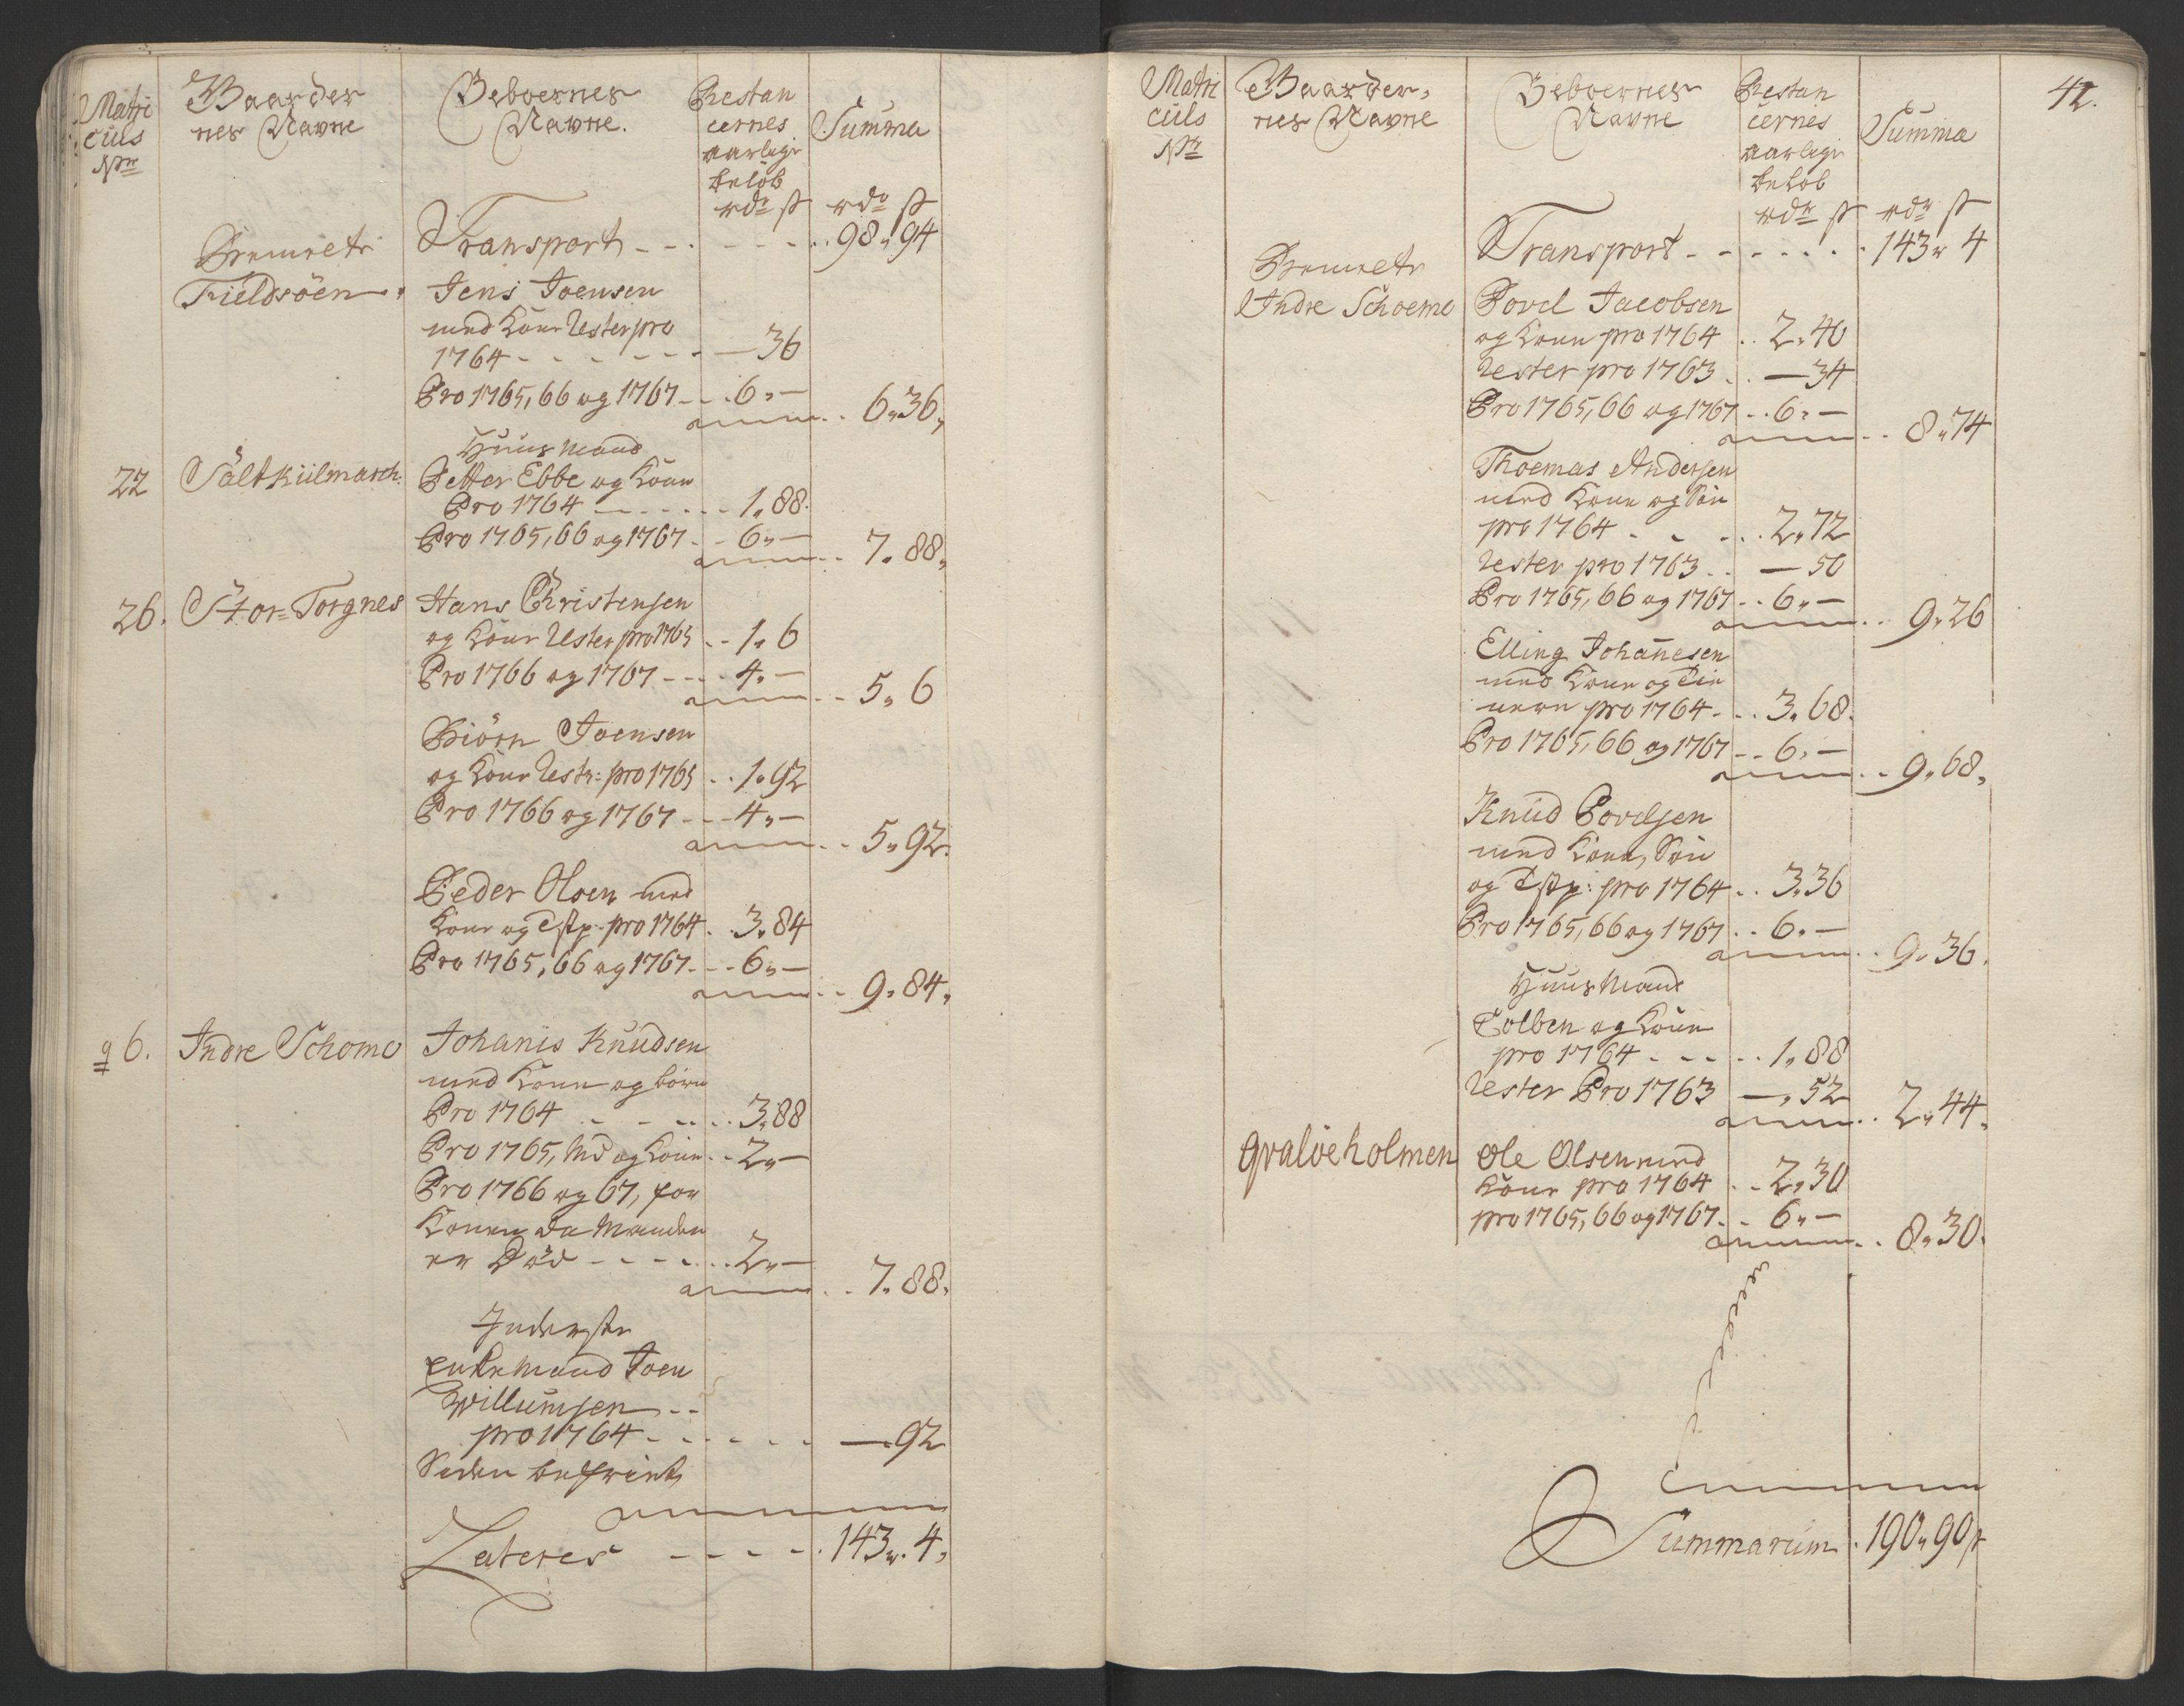 Matri
culs
Nr
Gaarder
nes Navne
Beboernes
Navne.
Restan
cernes
aarlige
beløb
rdr ß
Summa
rdr ß
Transport - - - - - 98 „ 94
Fieldsöen
Jens Joensen
med Kone Rester pro
1764 - - - - - - — 36
Pro 1765, 66 og 1767 - - 6 „ —
6 „ 36 „
Huusmand
22 Saltkiilmarch: Petter Ebbe og Kone
Pro 1764 - - - - - 1 „ 88.
Pro 1765, 66 og 1767 - - 6 „ —
7 „ 88 „
26. Stor=Torgnes Hans Christensen
og Kone Rester pro 1765 - - 1 „ 6
Pro 1766 og 1767 - - - 4 „ —
5 „ 6
Biörn Joensen
og Kone Restr: pro 1765 - - 1 „ 92
Pro 1766 og 1767 - - - 4 „ —
5 „ 92.
Peder Olsen med
Kone og Tstp: pro 1764 - - 3 „ 84
Pro 1765, 66 og 1767 - - - 6 „ —
9 „ 84 „
96. Indre Schomo Johanis Knudsen
med Kone og börn
Pro 1764 - - - - - 3 „ 88
Pro 1765, Md og Kone - - 2 „ —
Pro 1766 og 67, for
Konen da Manden
er Död - - - - - 2 „ —
7 „ 88.
Inderste
Enkemand Joen
Willumsen - -
pro 1764 - - - - - — 92
Siden
Lateres - - - - 143 „ 4 „
42.
Matri
culs
Nr
Gaarder,
nes Navne
Beboernes
Navne
Restan
cernes
aarlige
beløb
rdr ß
Summa
rdr ß
Transport - - - - - - 143 „ 4
Indre Schoemo Povel Jacobsen
og Kone pro 1764 - - 2 „ 40
Rester pro 1763 - - — 34
Pro 1765, 66 og 1767 - - 6 „ —
8 „ 74
Thoemas Andersen
med Kone og Sön
pro 1764 - - - - 2 „ 72
Rester pro 1763 - - — 50
Pro 1765, 66 og 1767 - - 6 „ —
9 „ 26
Elling Johannesen
med Kone og Tie
nere pro 1764 - - 3 „ 68.
Pro 1765, 66 og 1767 - - 6 „ —
9 „ 68 „
Knud Povelsen
med Kone, Sön
og Tstp: pro 1764 - - 3 „ 36
Pro 1765, 66 og 1767 - - 6 „ —
9 „ 36.
Huusmand
Tolben og Kone
pro 1764 - - - - 1 „ 88
Rester Pro 1763 — „ 52
2 „ 44.
Qvalöeholmen Ole Olsen med
Kone pro 1764 - - 2 „ 30
pro 1765, 66 og 1767 - - 6 „ —
8 „ 30.
Summarum . 190 „ 90 ß